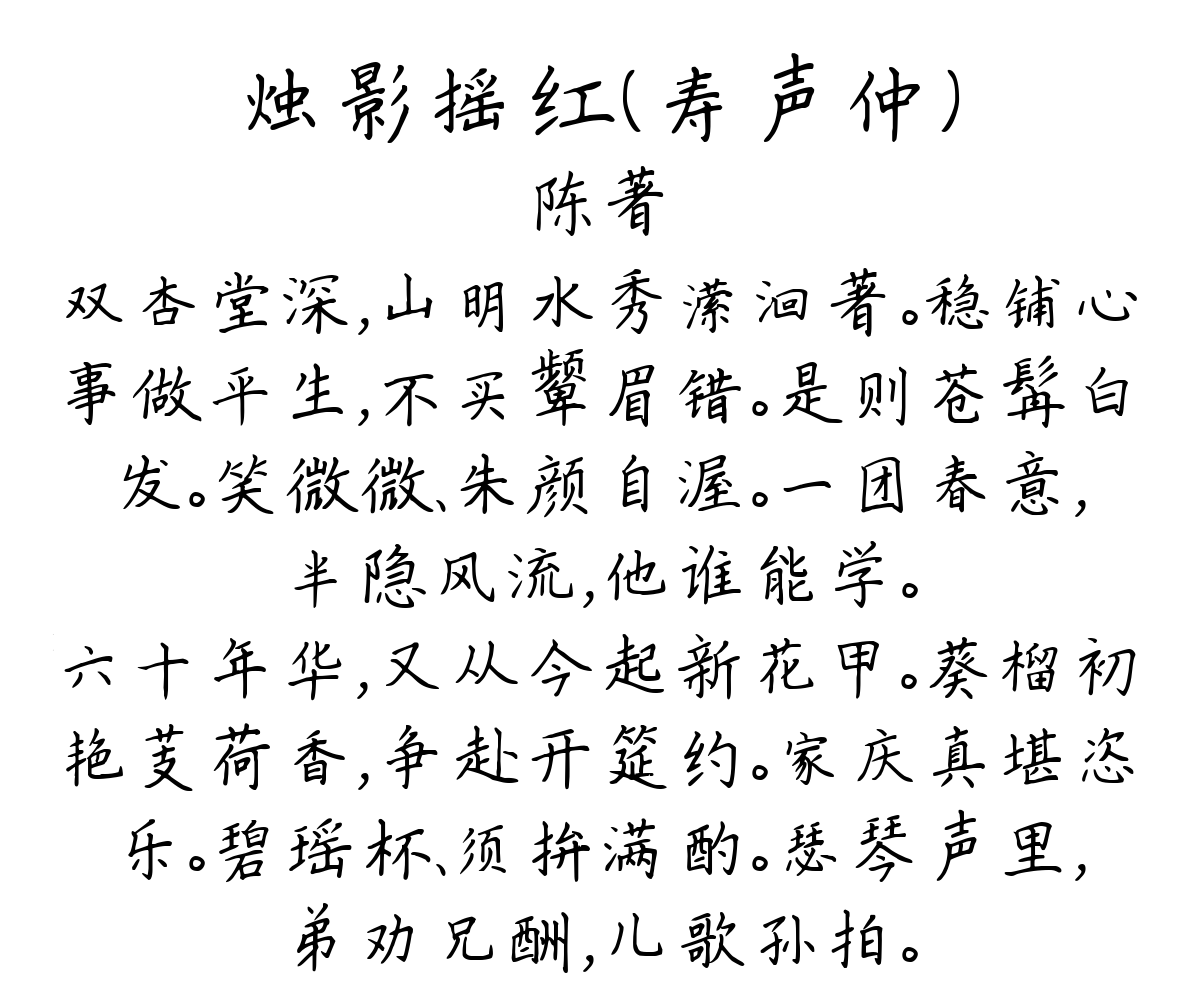 烛影摇红(寿声仲)
陈著
双杏堂深,山明水秀潆洄著。稳铺心
事做平生,不买颦眉错。是则苍髯白
发。笑微微、朱颜自渥。一团春意,
半隐风流,他谁能学。
六十年华,又从今起新花甲。葵榴初
艳芰荷香,争赴开筵约。家庆真堪恣
乐。碧瑶杯、须拚满酌。瑟琴声里,
弟劝兄酬,儿歌孙拍。